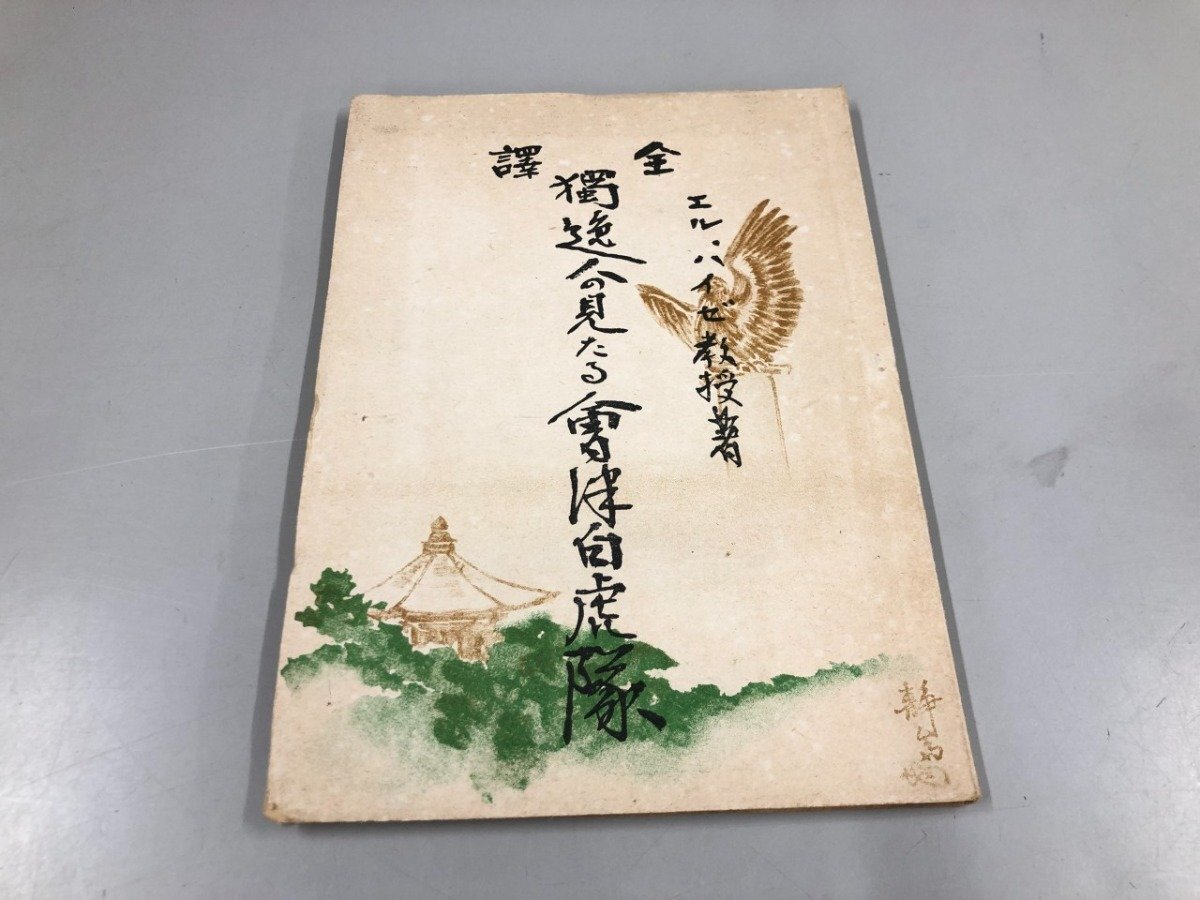 全譯
エル、ハイゼ教授著
獨逸人の見たる會津白虎隊